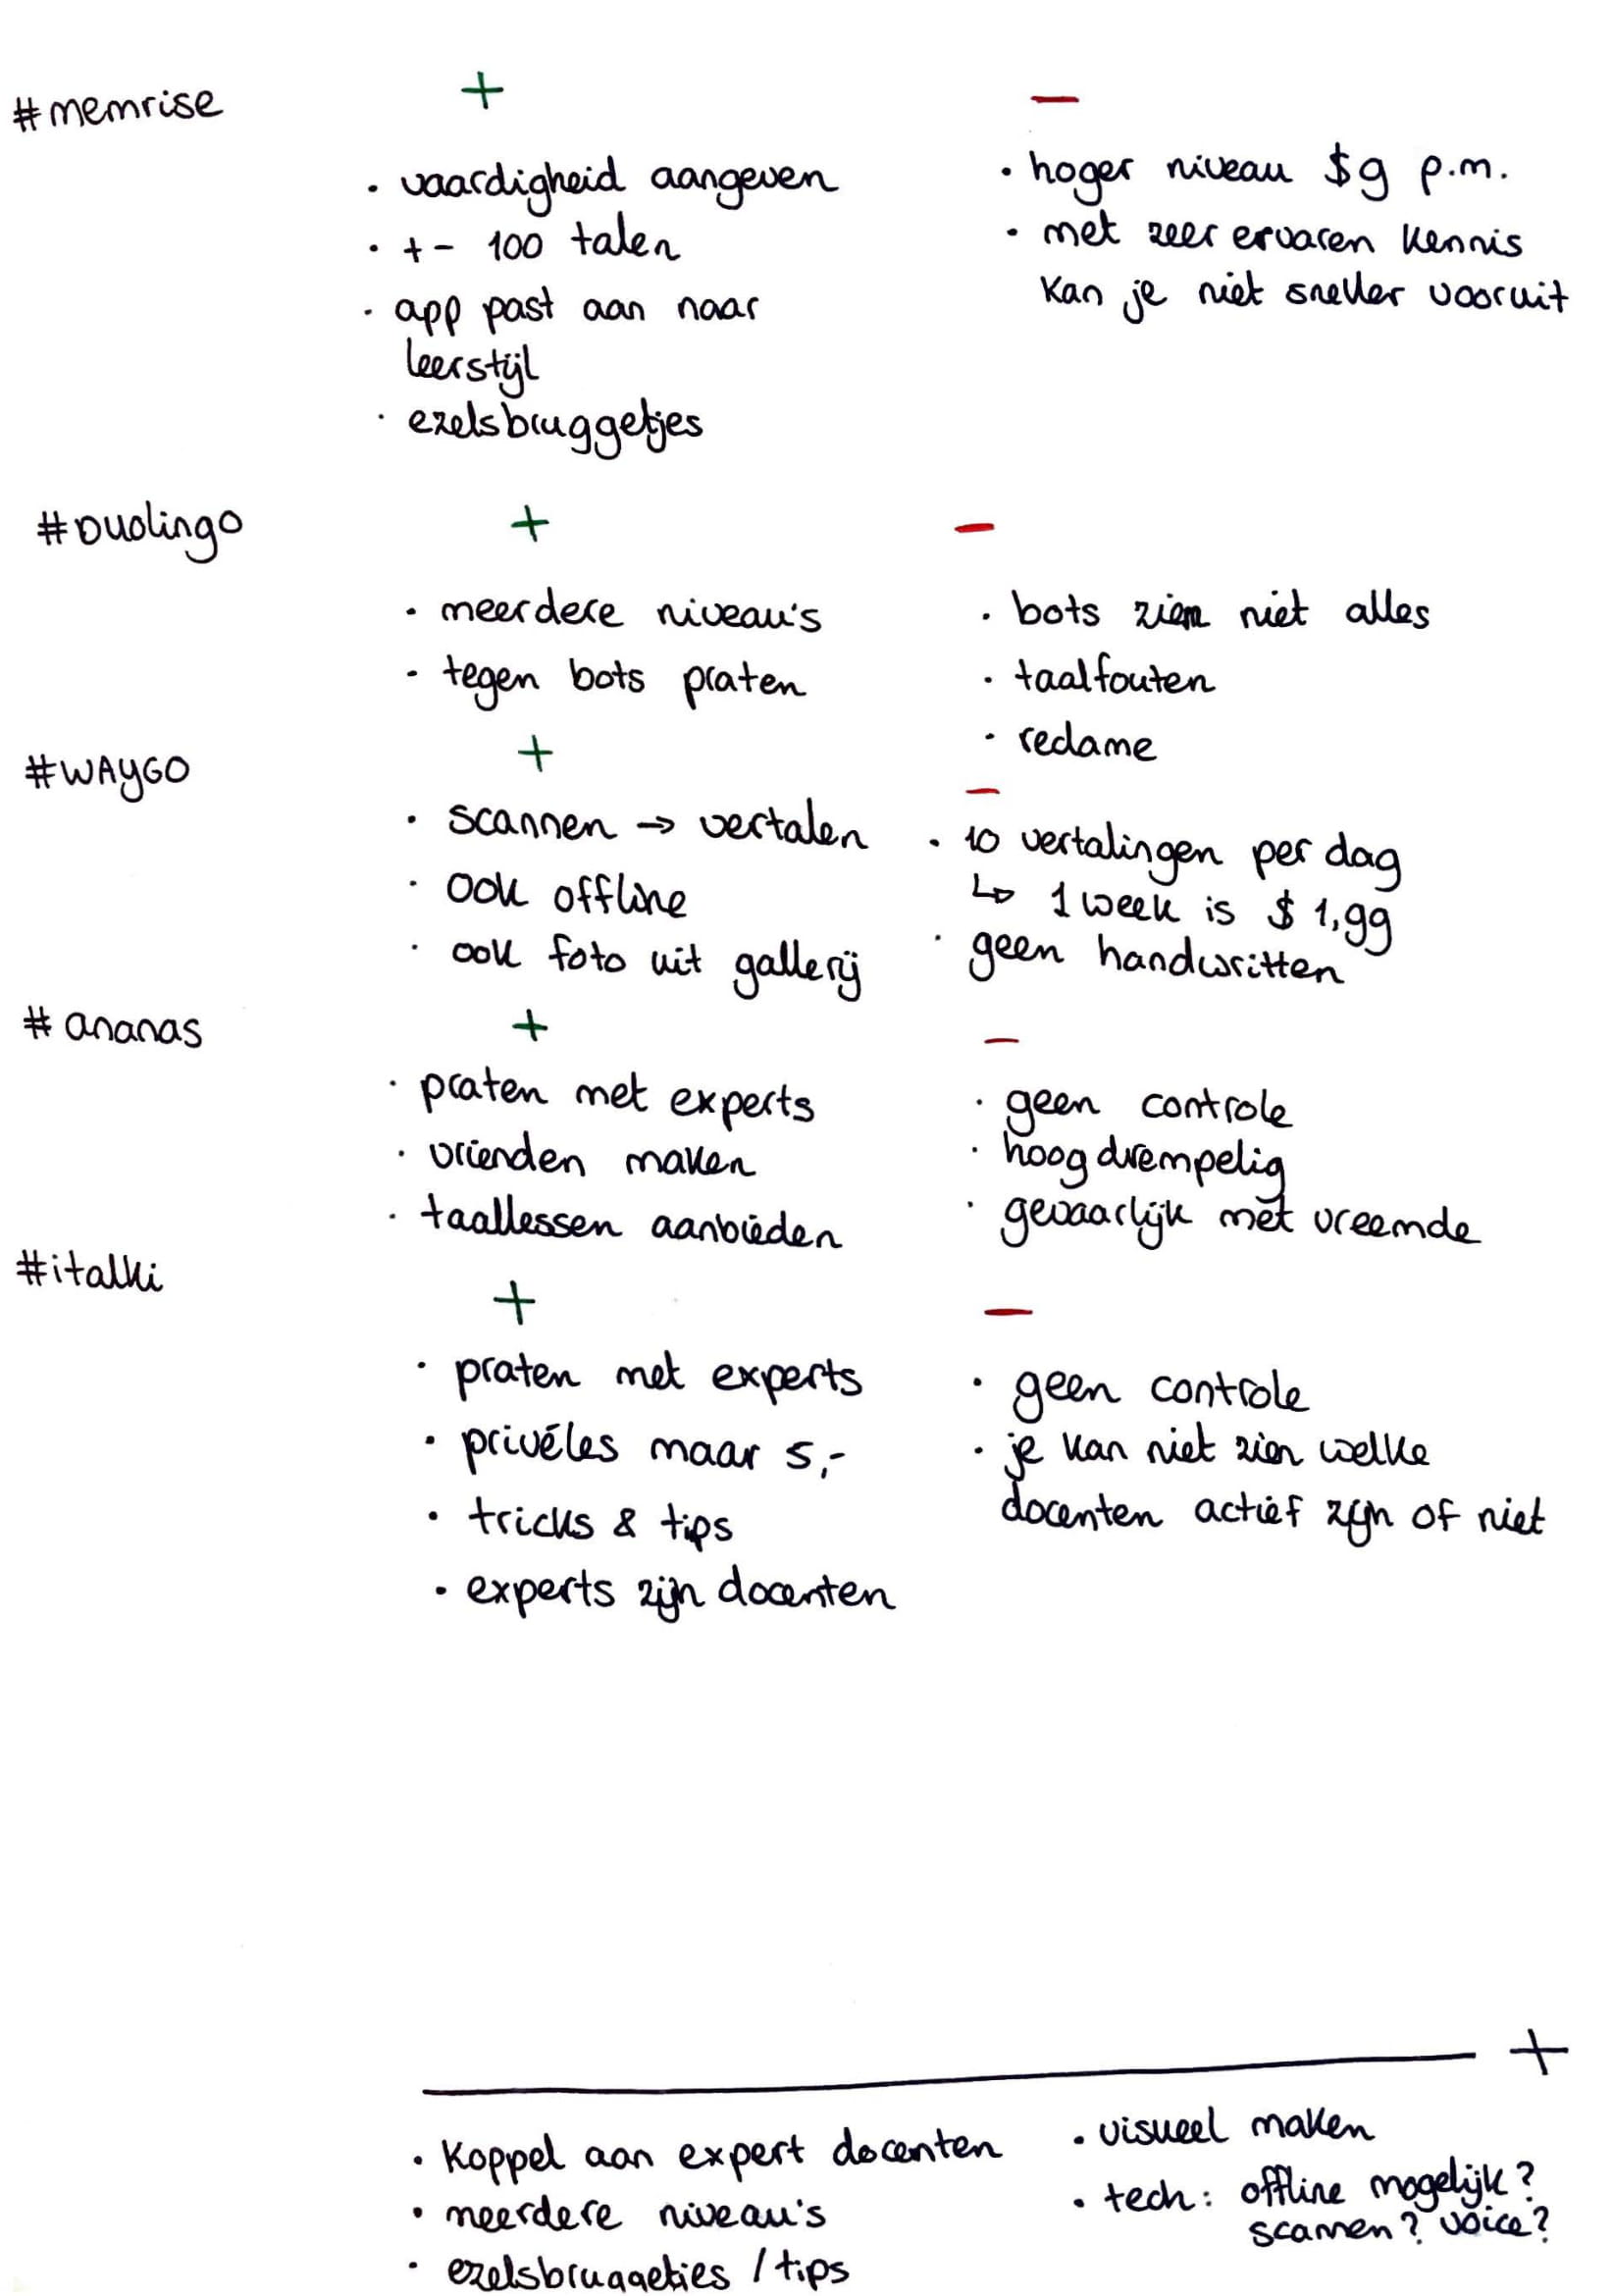 #memrise
+
· vaardigheid aangeven
· +- 100 talen
· app past aan naar
leerstijl
· ezelsbruggetjes
−
· hoger niveau $9 p.m.
· met zeer ervaren kennis
kan je niet sneller vooruit
#Duolingo
+
· meerdere niveau's
· tegen bots praten
−
· bots zien niet alles
· taalfouten
· reclame
#WAYGO
+
· scannen → vertalen
· ook offline
· ook foto uit gallerij
−
· 10 vertalingen per dag
↳ 1 week is $ 1,99
· geen handwritten
# ananas
+
· praten met experts
· vrienden maken
· taallessen aanbieden
−
· geen controle
· hoogdrempelig
· gevaarlijk met vreemde
#italki
+
· praten met experts
· privéles maar 5,-
· tricks & tips
· experts zijn docenten
−
· geen controle
· je kan niet zien welke
docenten actief zijn of niet
+
· Koppel aan expert docenten
· meerdere niveau's
· ezelsbruggetjes / tips
· visueel maken
· tech: offline mogelijk?
scannen? voice?